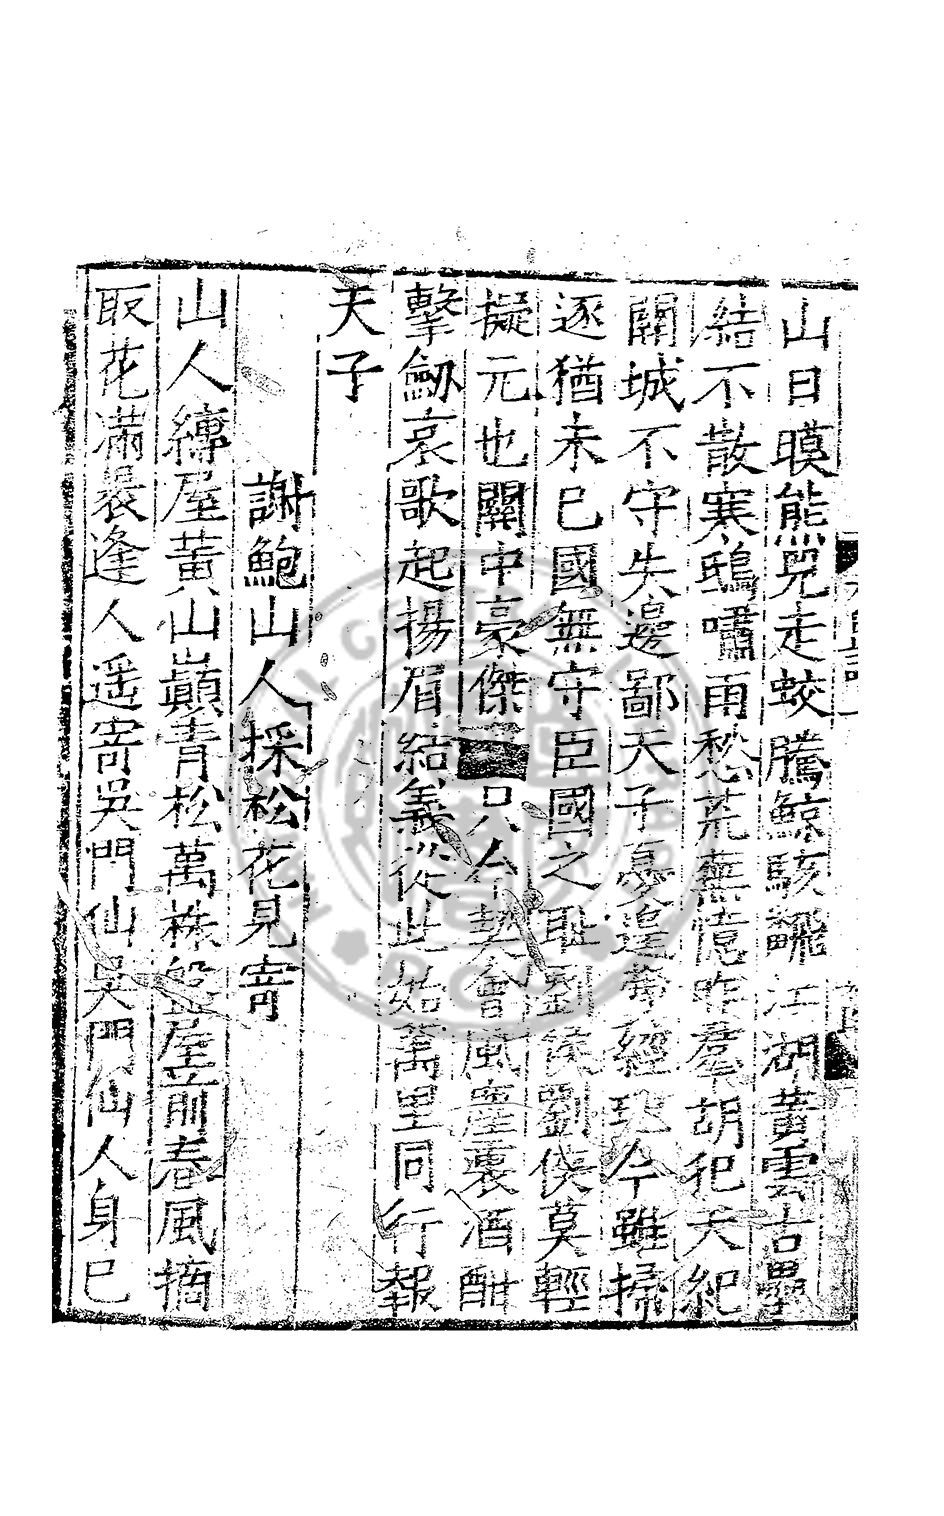 山日暯熊咒走蛟騰鯨駭飜江湖黃雲古壘
結不散寒鴟嘯雨愁荒蕪憶昨羣胡犯天紀
關城不守失邊鄙天子憂遑學經理今雖掃
逐猶未已國無守臣國之耻劉侯劉侯莫輕
擬元也關中豪傑士只今契會風塵裏酒酣
擊劒哀歌起揚眉結義從此始萬里同行報
天子
謝鮑山人採松花見寄
山人縳屋黃山巔青松萬株盤屋前春風摘
取花滿裠逢人遥寄吳門仙吳門仙人身巳